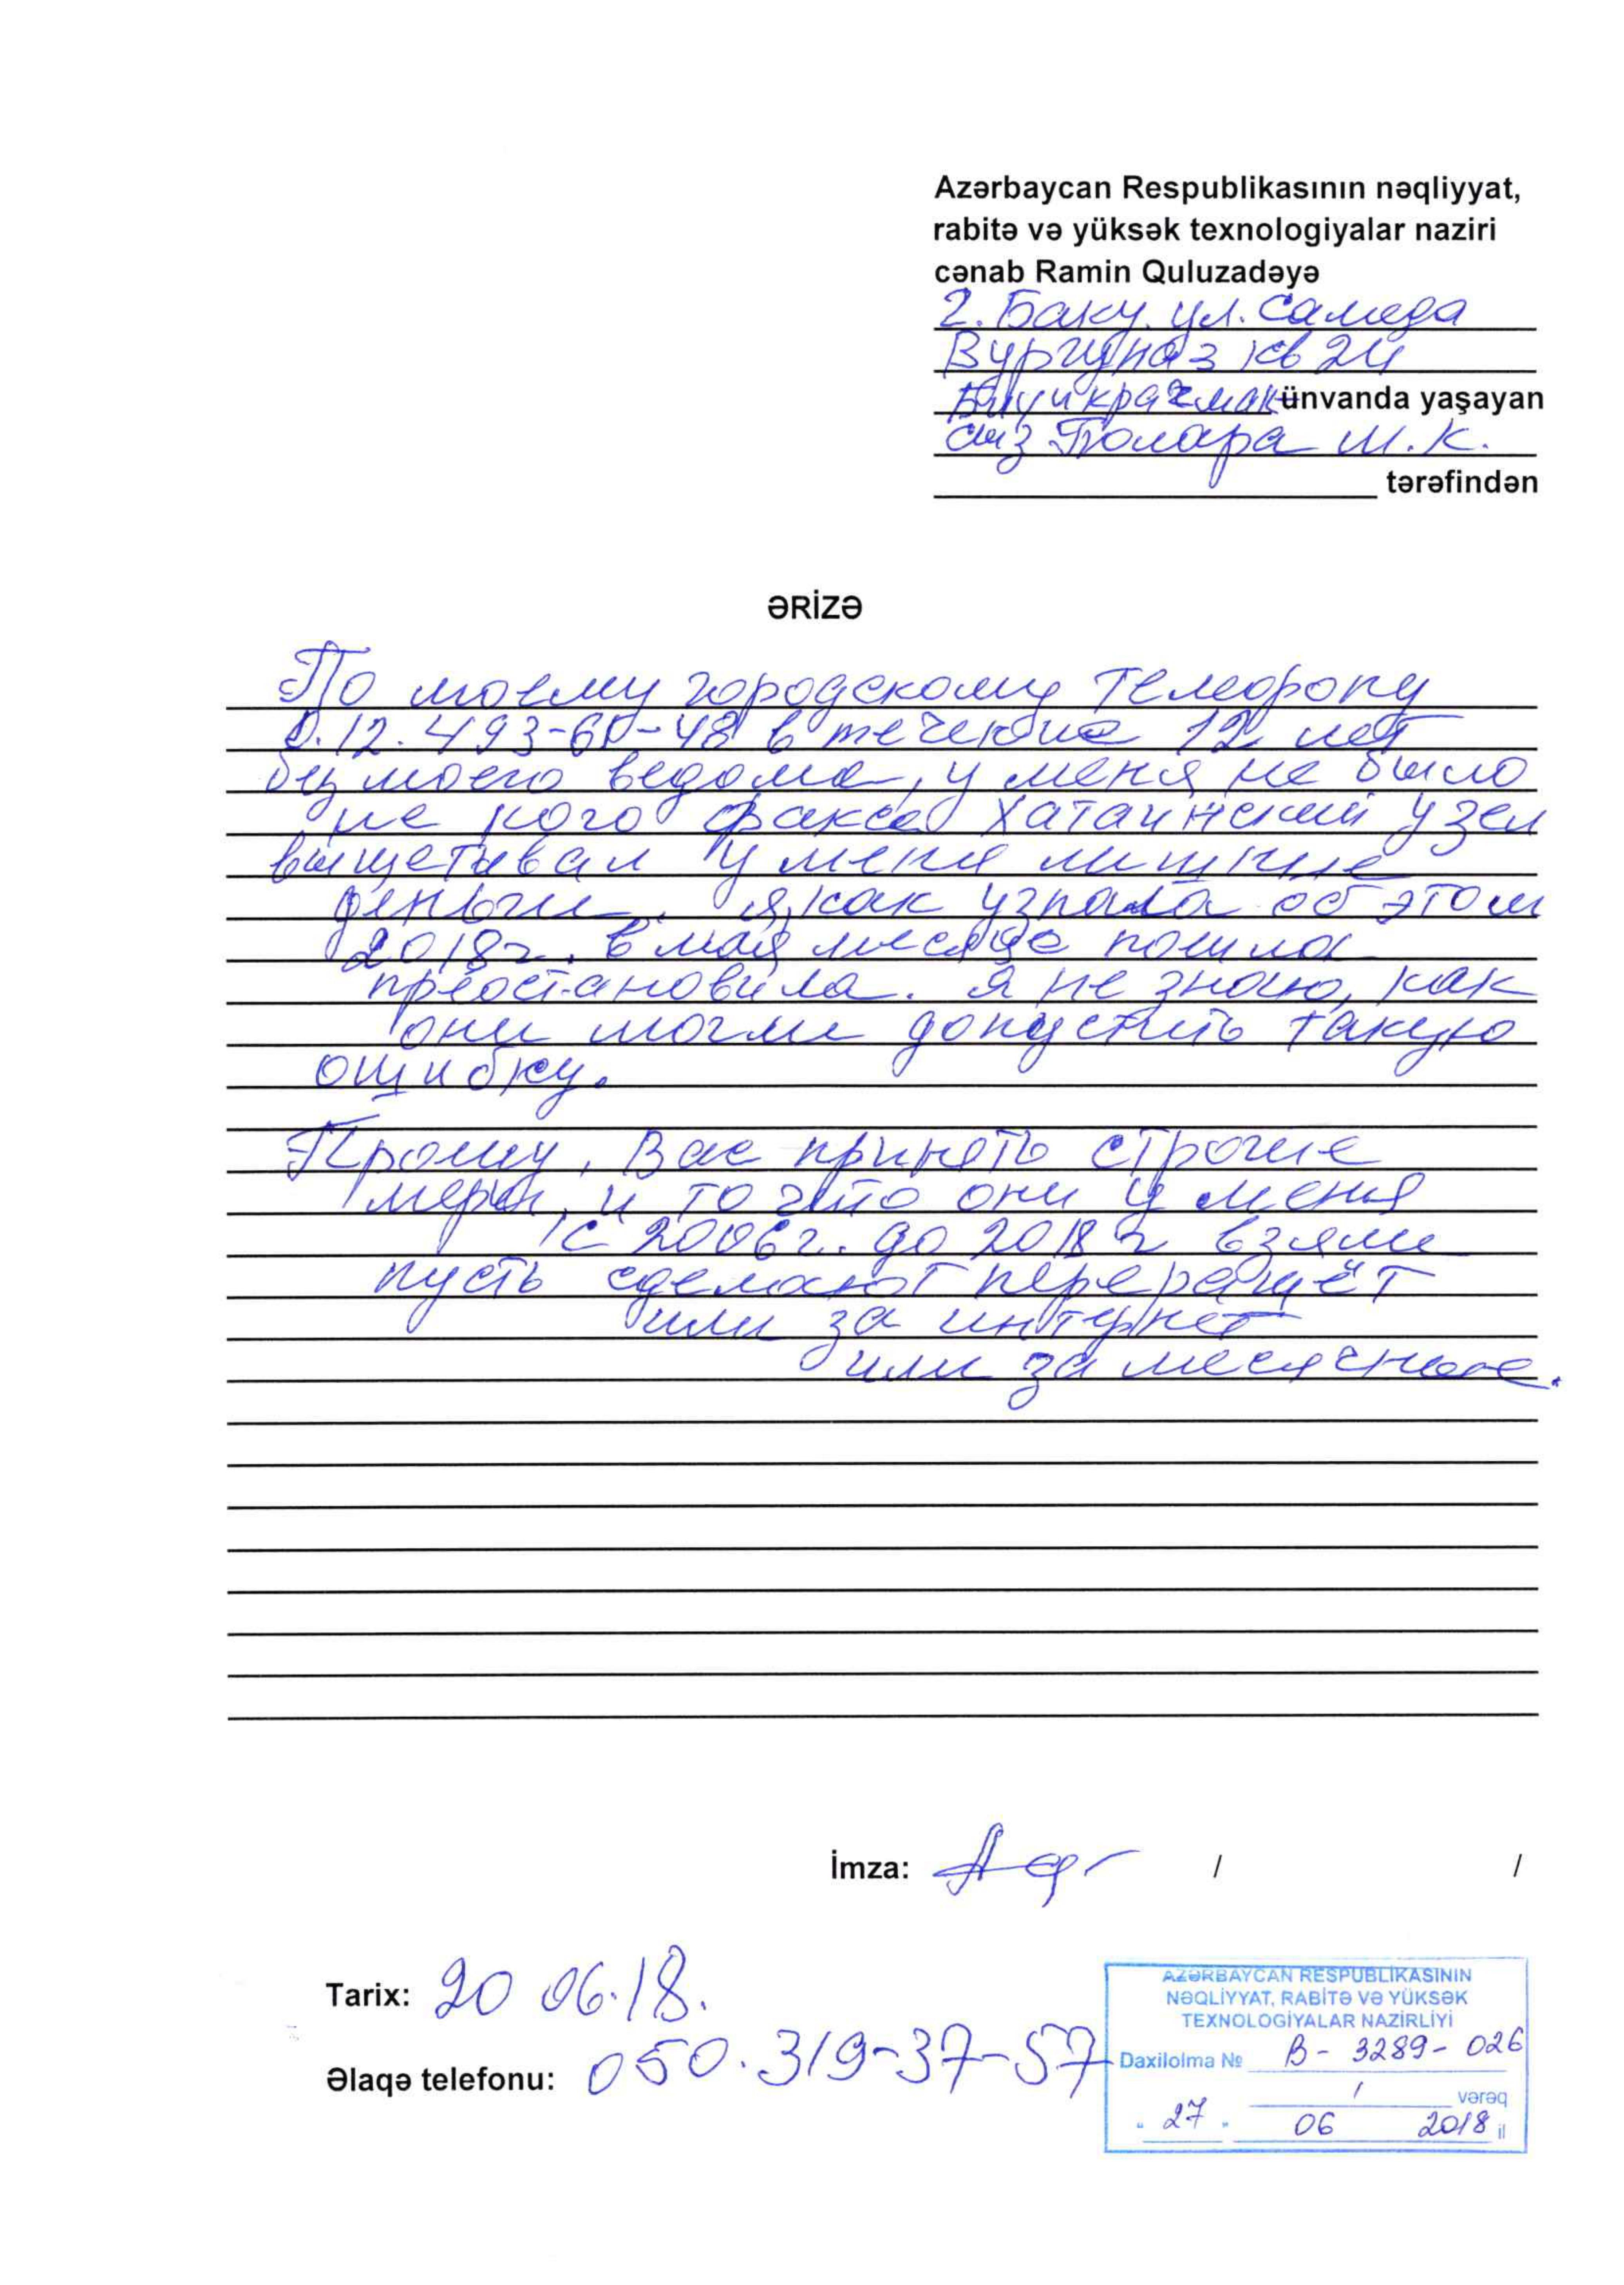 Azərbaycan Respublikasının nəqliyyat,
rabitə və yüksək texnologiyalar naziri
cənab Ramin Quluzadəyə
г. Баку. ул. Самеда
Вургуна 3 кв 24
ünvanda yaşayan
Полара Ш. К.
tərəfindən
ƏRİZƏ
По моему городскому телефону
0.12.493-60-48 в течение 12 лет
без моего ведома, у меня не было
не кого факса Хатаинский узел
выщетывал у меня лишние
деньги. я, как узнала об этом
2018г. в мая месяце пошла
преостановила. я не знаю, как
они могли допустить такую
ошибку.
Прошу, Вас принять строгие
меры, и то что они у меня
с 2006г. до 2018 г взяли
пусть сделают перерещёт
или за интернет
или за месячное.
İmza: / /
Tarix: 20 06.18.
Əlaqə telefonu: 050.319-37-57
AZƏRBAYCAN RESPUBLİKASININ
NƏQLİYYAT, RABİTƏ VƏ YÜKSƏK
TEXNOLOGİYALAR NAZİRLİYİ
Daxilolma № B- 3289- 026
1 vərəq
" 27 " 06 2018 il